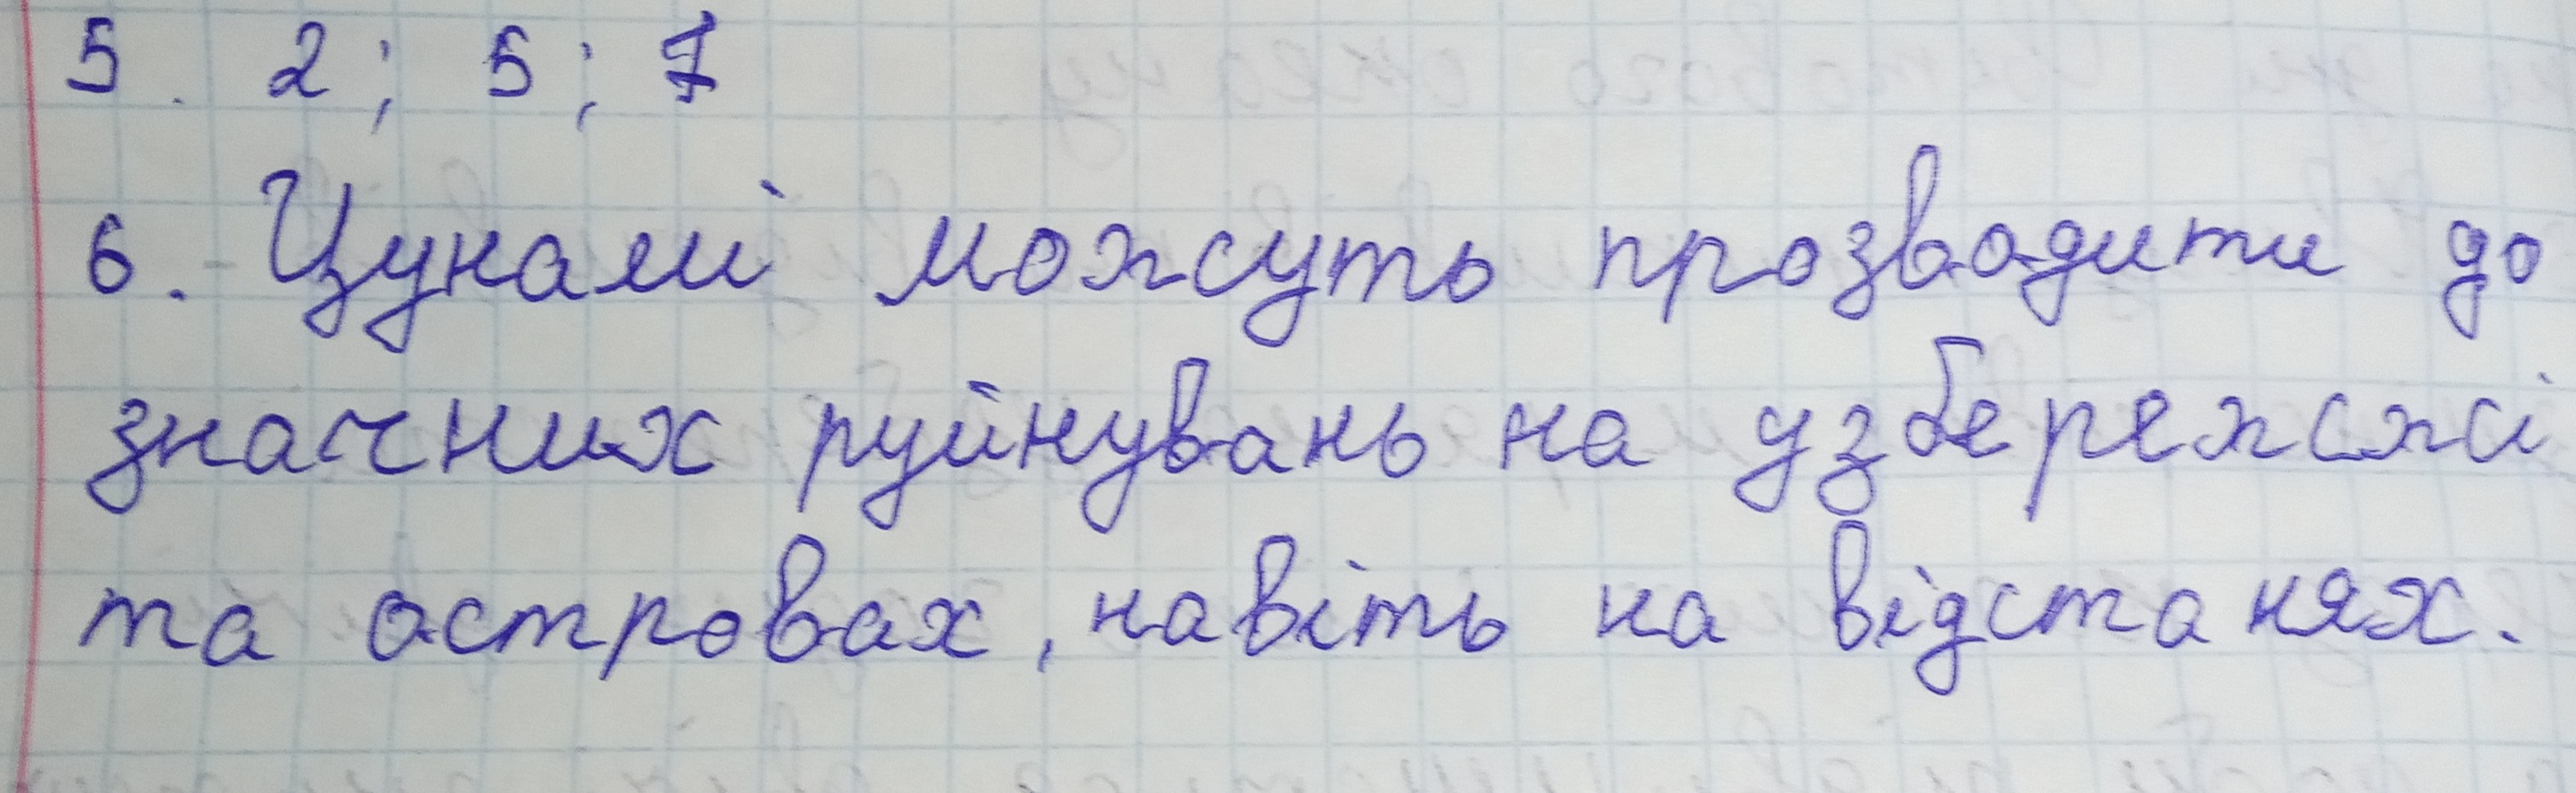 5. 2; 5; 7
6. Цунамі можуть прозводити до
значних руйнувань на узбережжі
та островах, навіть на відстанях.